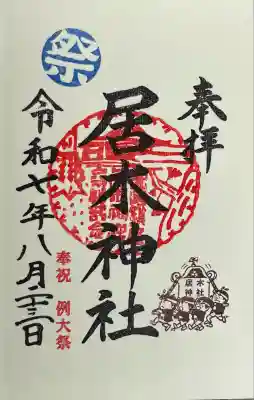 奉拝
居木神社
祭
令和七年八月二十三日
奉祝 例大祭
居木
神社